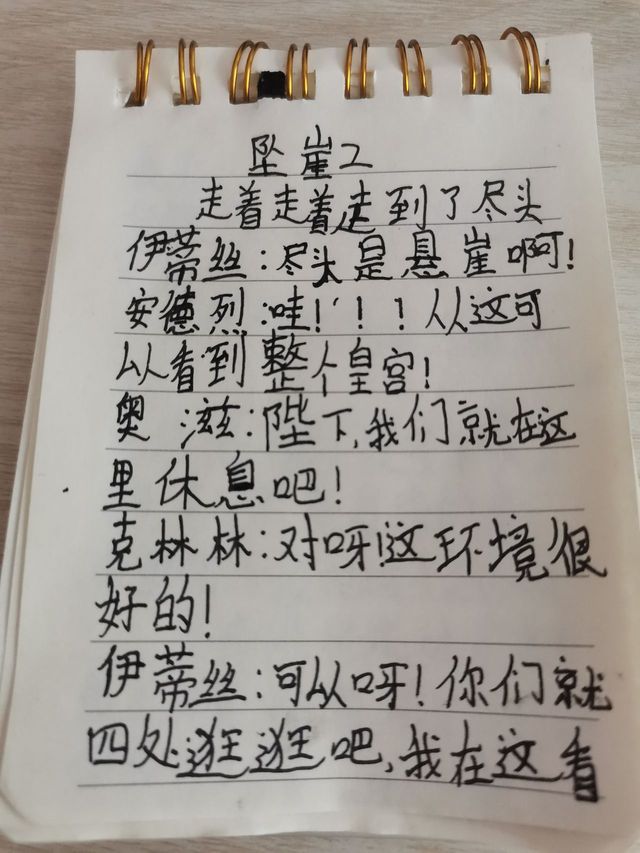 坠崖2
走着走着走到了尽头
伊蒂丝:尽头是悬崖啊!
安德烈:哇!!!从这可
以看到整个皇宫!
奥滋:陛下,我们就在这
里休息吧!
克林林:对呀!这环境很
好的!
伊蒂丝:可以呀!你们就
四处逛逛吧,我在这看